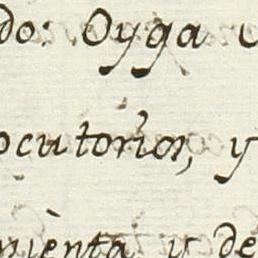 do: Oyga
ocutorior, y
mienta y de